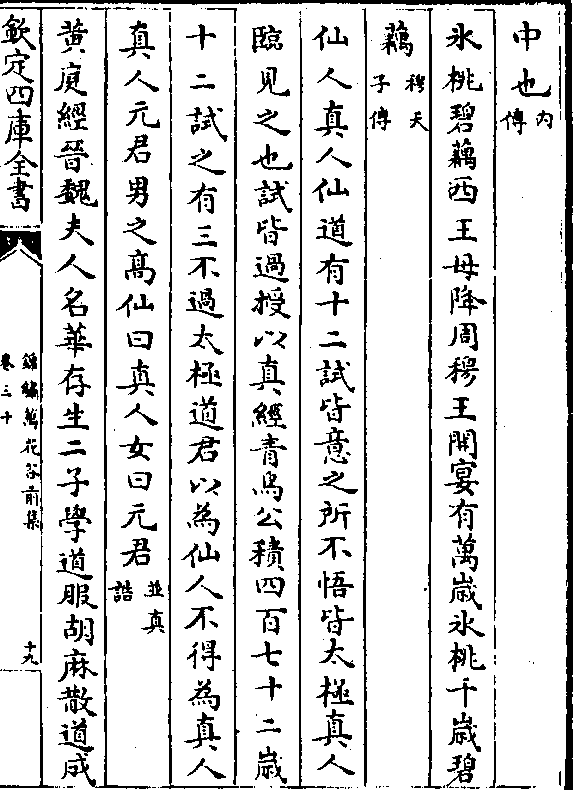 中也内傳
氷桃碧藕西王母降周穆王開宴有萬歳氷桃千歳碧
藕穆天子傳
仙人真人仙道有十二試皆意之所不悟皆太極真人
臨見之也試皆過授以真經青烏公積四百七十二歳
十二試之有三不過太極道君以為仙人不得為真人
真人元君男之髙仙曰真人女曰元君並真誥
黄庭經晉魏夫人名華存生二子學道服胡麻散道成
欽定四庫全書
錦繡萬花谷前集
卷三十
十九